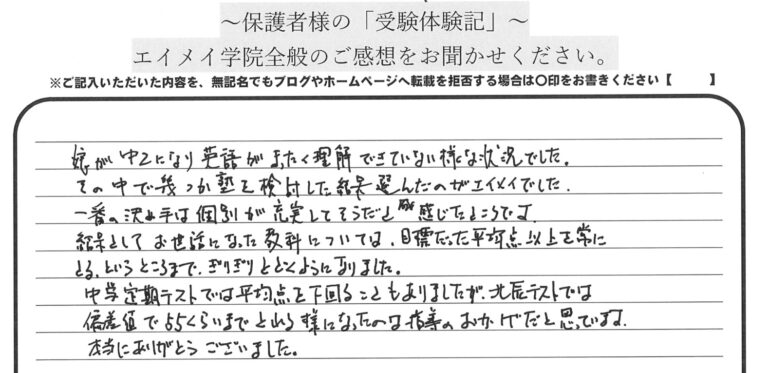 ～保護者様の「受験体験記」～
エイメイ学院全般のご感想をお聞かせください。
※ご記入いただいた内容を、無記名でもブログやホームページへ転載を拒否する場合は〇印をお書きください【　　】
娘が中2になり英語がまったく理解できていない様な状況でした。
その中で幾つか塾を検討した結果選んだのがエイメイでした。
一番の決め手は個別が充実してそうだと感じたところです。
結果としてお世話になった教科については、目標だった平均点以上を常に
とる、というところまで、ぎりぎりとどくようになりました。
中学定期テストでは平均点を下回ることもありましたが、北辰テストでは
偏差値で55くらいまでとれる様になったのは指導のおかげだと思っています。
本当にありがとうございました。